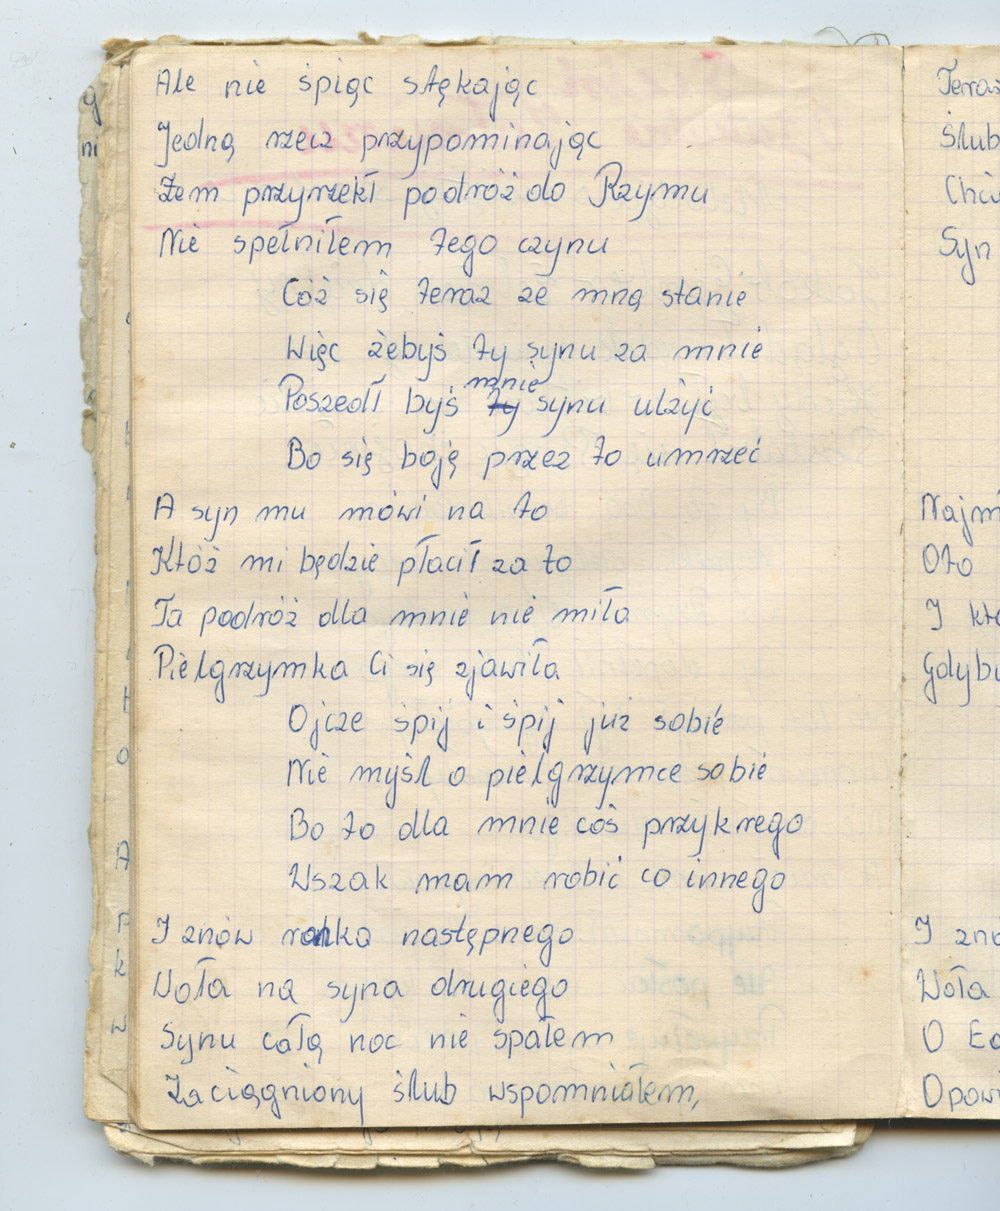 Ale nie śpiąc stękając
Jedną rzecz przypominając
Żem przyrzekł podróż do Rzymu
Nie spełniłem tego czynu
Cóż się teraz ze mną stanie
Więc żebyś ty synu za mnie
Poszedł byś mnie synu ulżyć
Bo się boję przez to umrzeć
A syn mu mówi na to
Któż mi będzie płacił za to
Ta podróż dla mnie nie miła
Pielgrzymka Ci się zjawiła
Ojcze śpij i śpij już sobie
Nie myśl o pielgrzymce sobie
Bo to dla mnie coś przykrego
Wszak mam robić co innego
I znów ranka następnego
Woła na syna drugiego
Synu całą noc nie spałem
Zaciągniony ślub wspomniałem,
Ślub
Syn
Oto
I
I
Woła
O